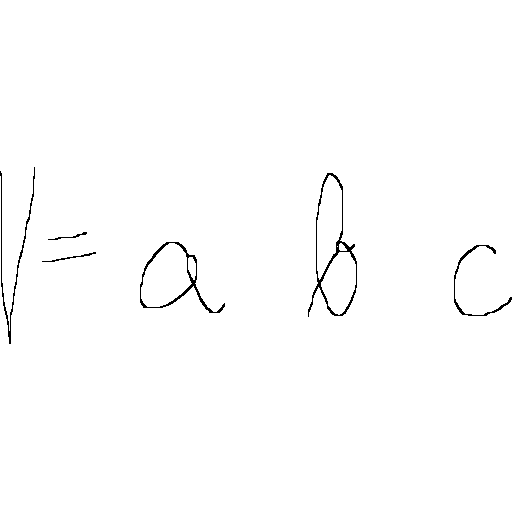 V = a b c